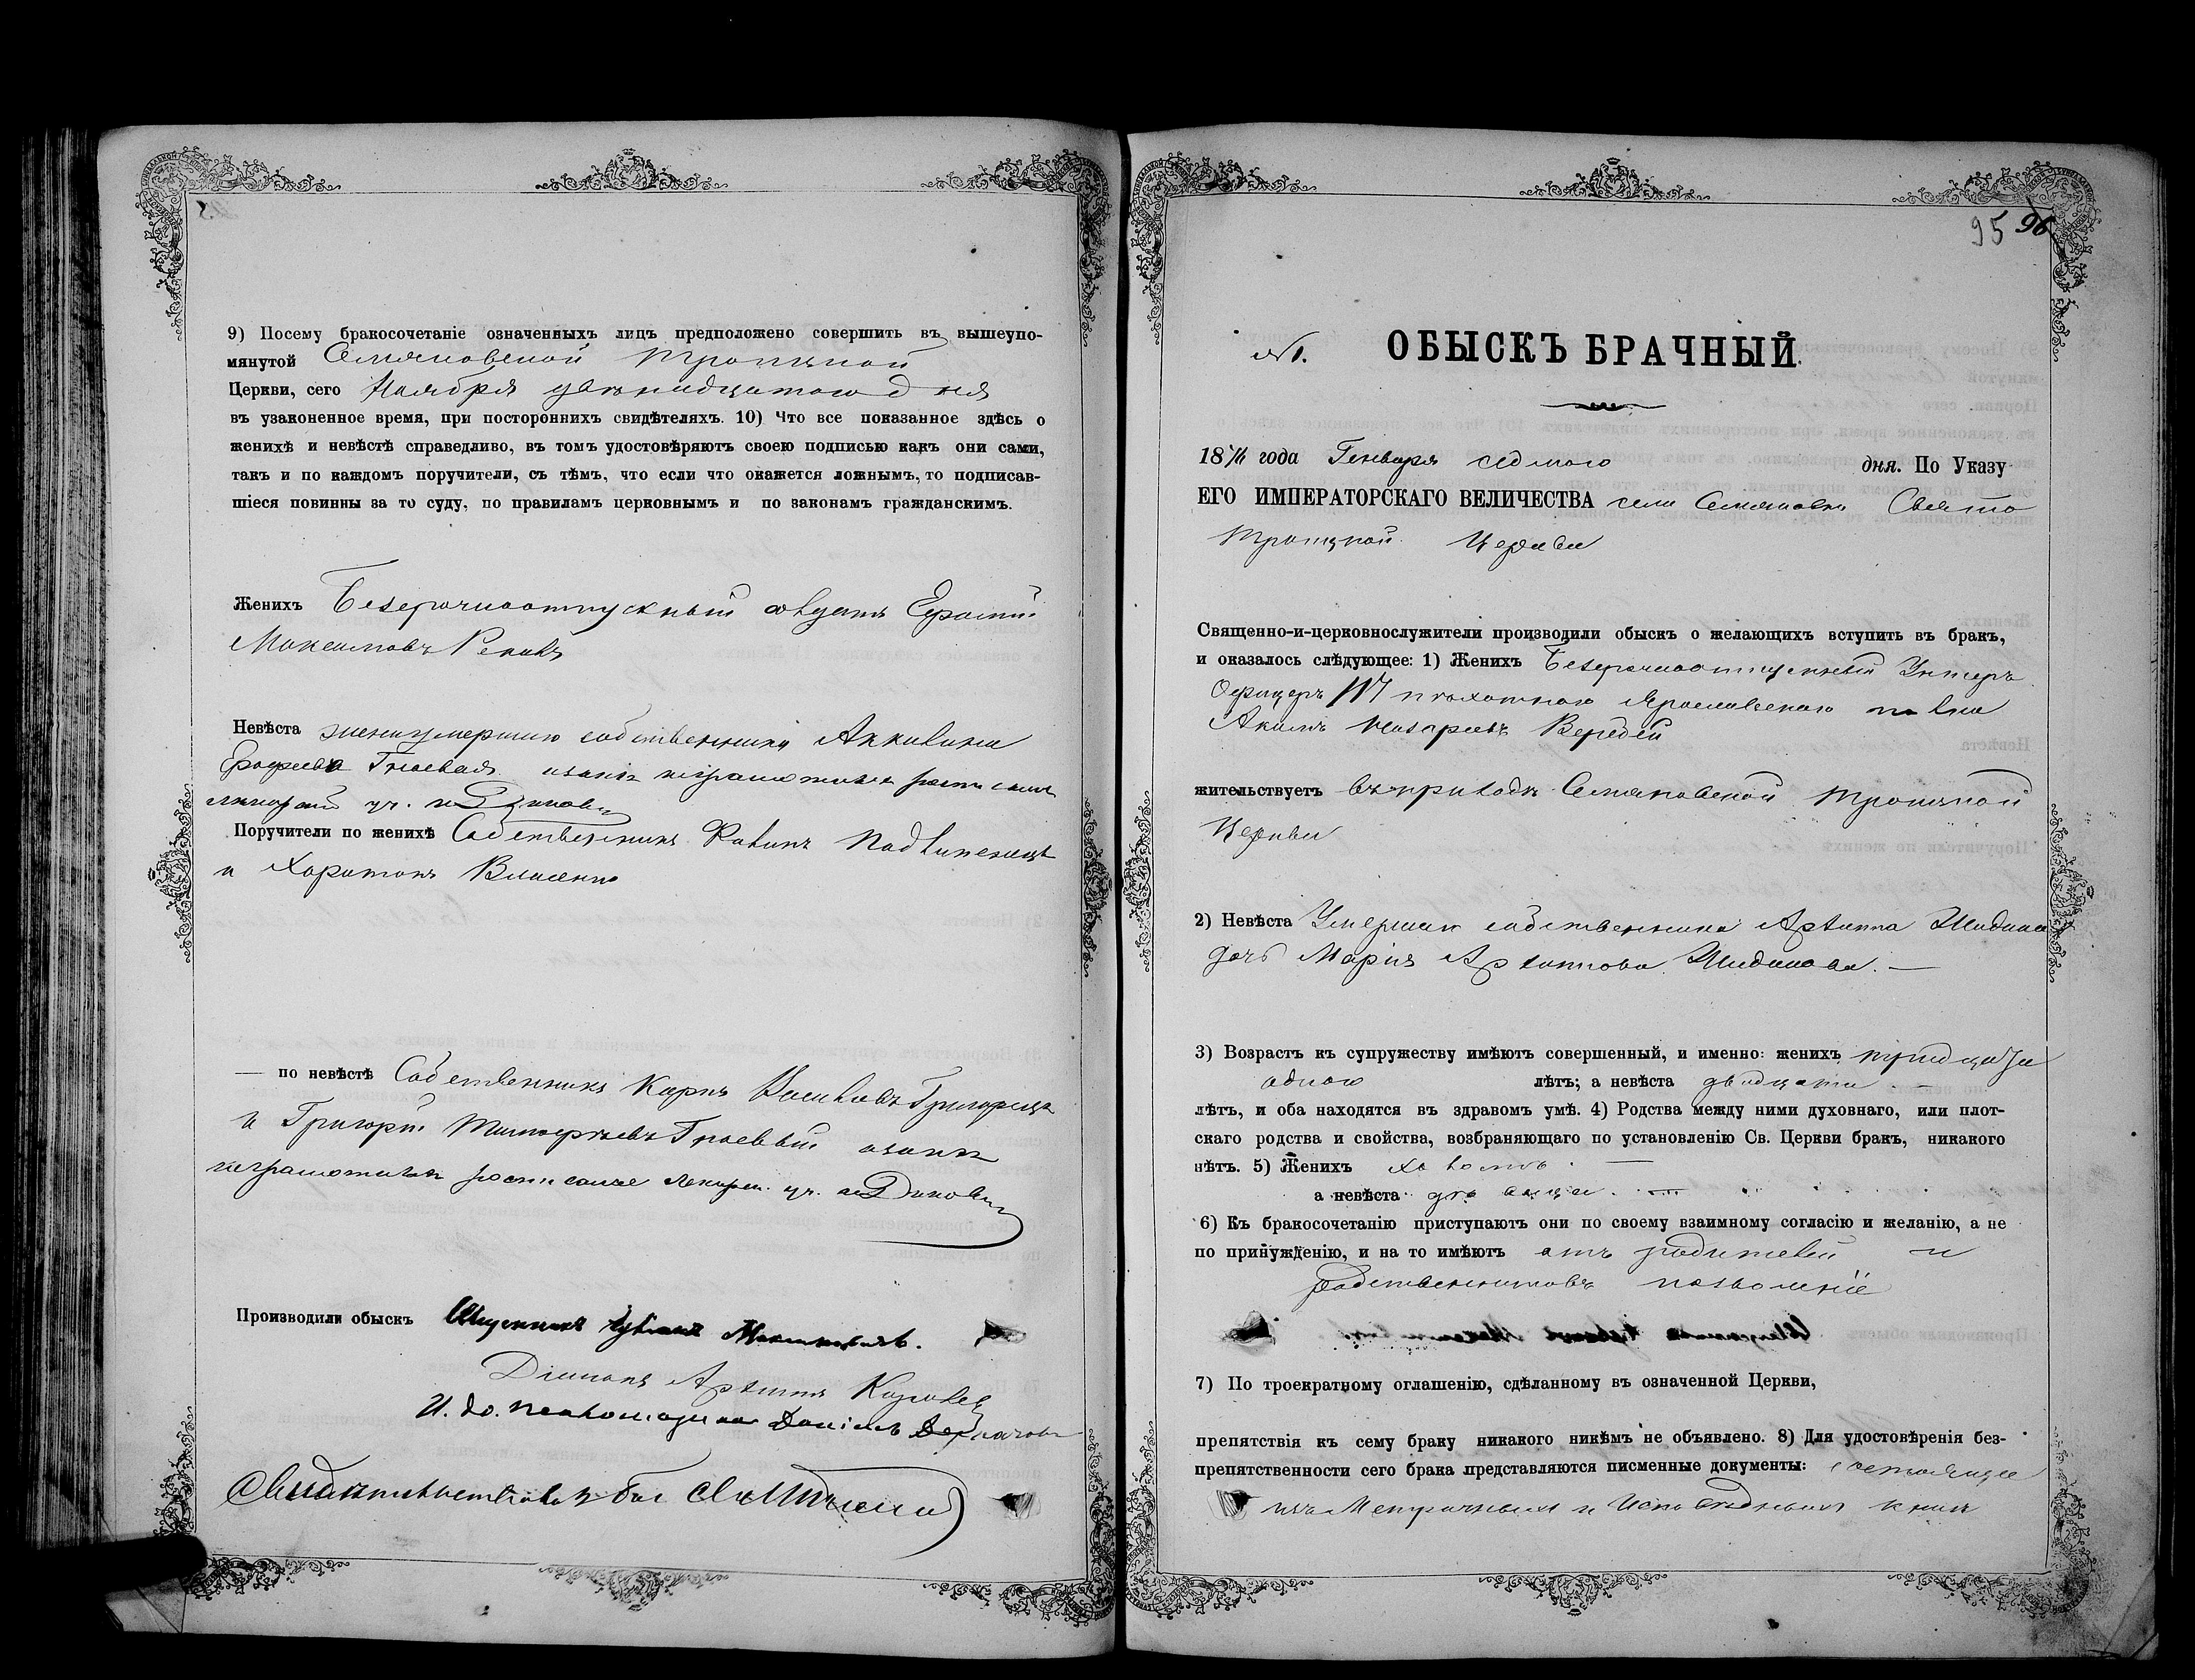 9) Посему бракосочетаніе означенныхъ лицъ предположено совершить въ вышеупо-
мянутой Семяновской Троицкой
Церкви, сего Ноября двѣнадцатого дня
въ узаконенное время, при постороннихъ свидѣтеляхъ. 10) Что все показанное здѣсь о
женихѣ и невѣстѣ справедливо, въ томъ удостовѣряютъ своею подписью какъ они сами,
такъ и по каждомъ поручители, съ тѣмъ, что если что окажется ложнымъ, то подписав-
шіеся повинны за то суду, по правиламъ церковнымъ и по законамъ гражданскимъ.
Женихъ Безсрочноотпускный
Максимовъ
Невѣста жена умершаго собственника Акилина
Гноевая
Поручители по женихѣ Собственникъ
и Харитонъ Власенко
— по невѣстѣ Собственники Карпъ
и Григорій Тимофѣевъ Гноевый
неграмотны
Производили обыскъ
Діаконъ Архипъ
И. до. псаломщика Даніилъ
95 96
№ 1.
ОБЫСКЪ БРАЧНЫЙ.
18 года Генваря седмого дня. По Указу
ЕГО ИМПЕРАТОРСКАГО ВЕЛИЧЕСТВА села Семяновки Свято
Троицкой Церкви
Священно-и-церковнослужители производили обыскъ о желающихъ вступить въ бракъ,
и оказалось слѣдующее: 1) Женихъ Безсрочноотпускный Унтеръ
Офицеръ 117 пѣхотного Ярославскаго полка
Акимъ Назарьевъ Вередѣй
жительствуетъ въ приходѣ Семяновской Троицкой
Церкви
2) Невѣста Умершаго собственника Архиппа
дочь Марія Архиппова
3) Возрастъ къ супружеству имѣютъ совершенный, и именно: женихъ тридцать
одного лѣтъ; а невѣста двадцати
лѣтъ, и оба находятся въ здравомъ умѣ. 4) Родства между ними духовнаго, или плот-
скаго родства и свойства, возбраняющаго по установленію Св. Церкви бракъ, никакого
нѣтъ. 5) Женихъ холостъ
а невѣста дѣвица
6) Къ бракосочетанію приступаютъ они по своему взаимному согласію и желанію, а не
по принужденію, и на то имѣютъ отъ родителей и
родственниковъ позволеніе
7) По троекратному оглашенію, сдѣланному въ означенной Церкви,
препятствія къ сему браку никакого никѣмъ не объявлено. 8) Для удостовѣренія без-
препятственности сего брака представляются писменные документы: состоящіе
изъ Метричныхъ и Исповѣдныхъ книгъ